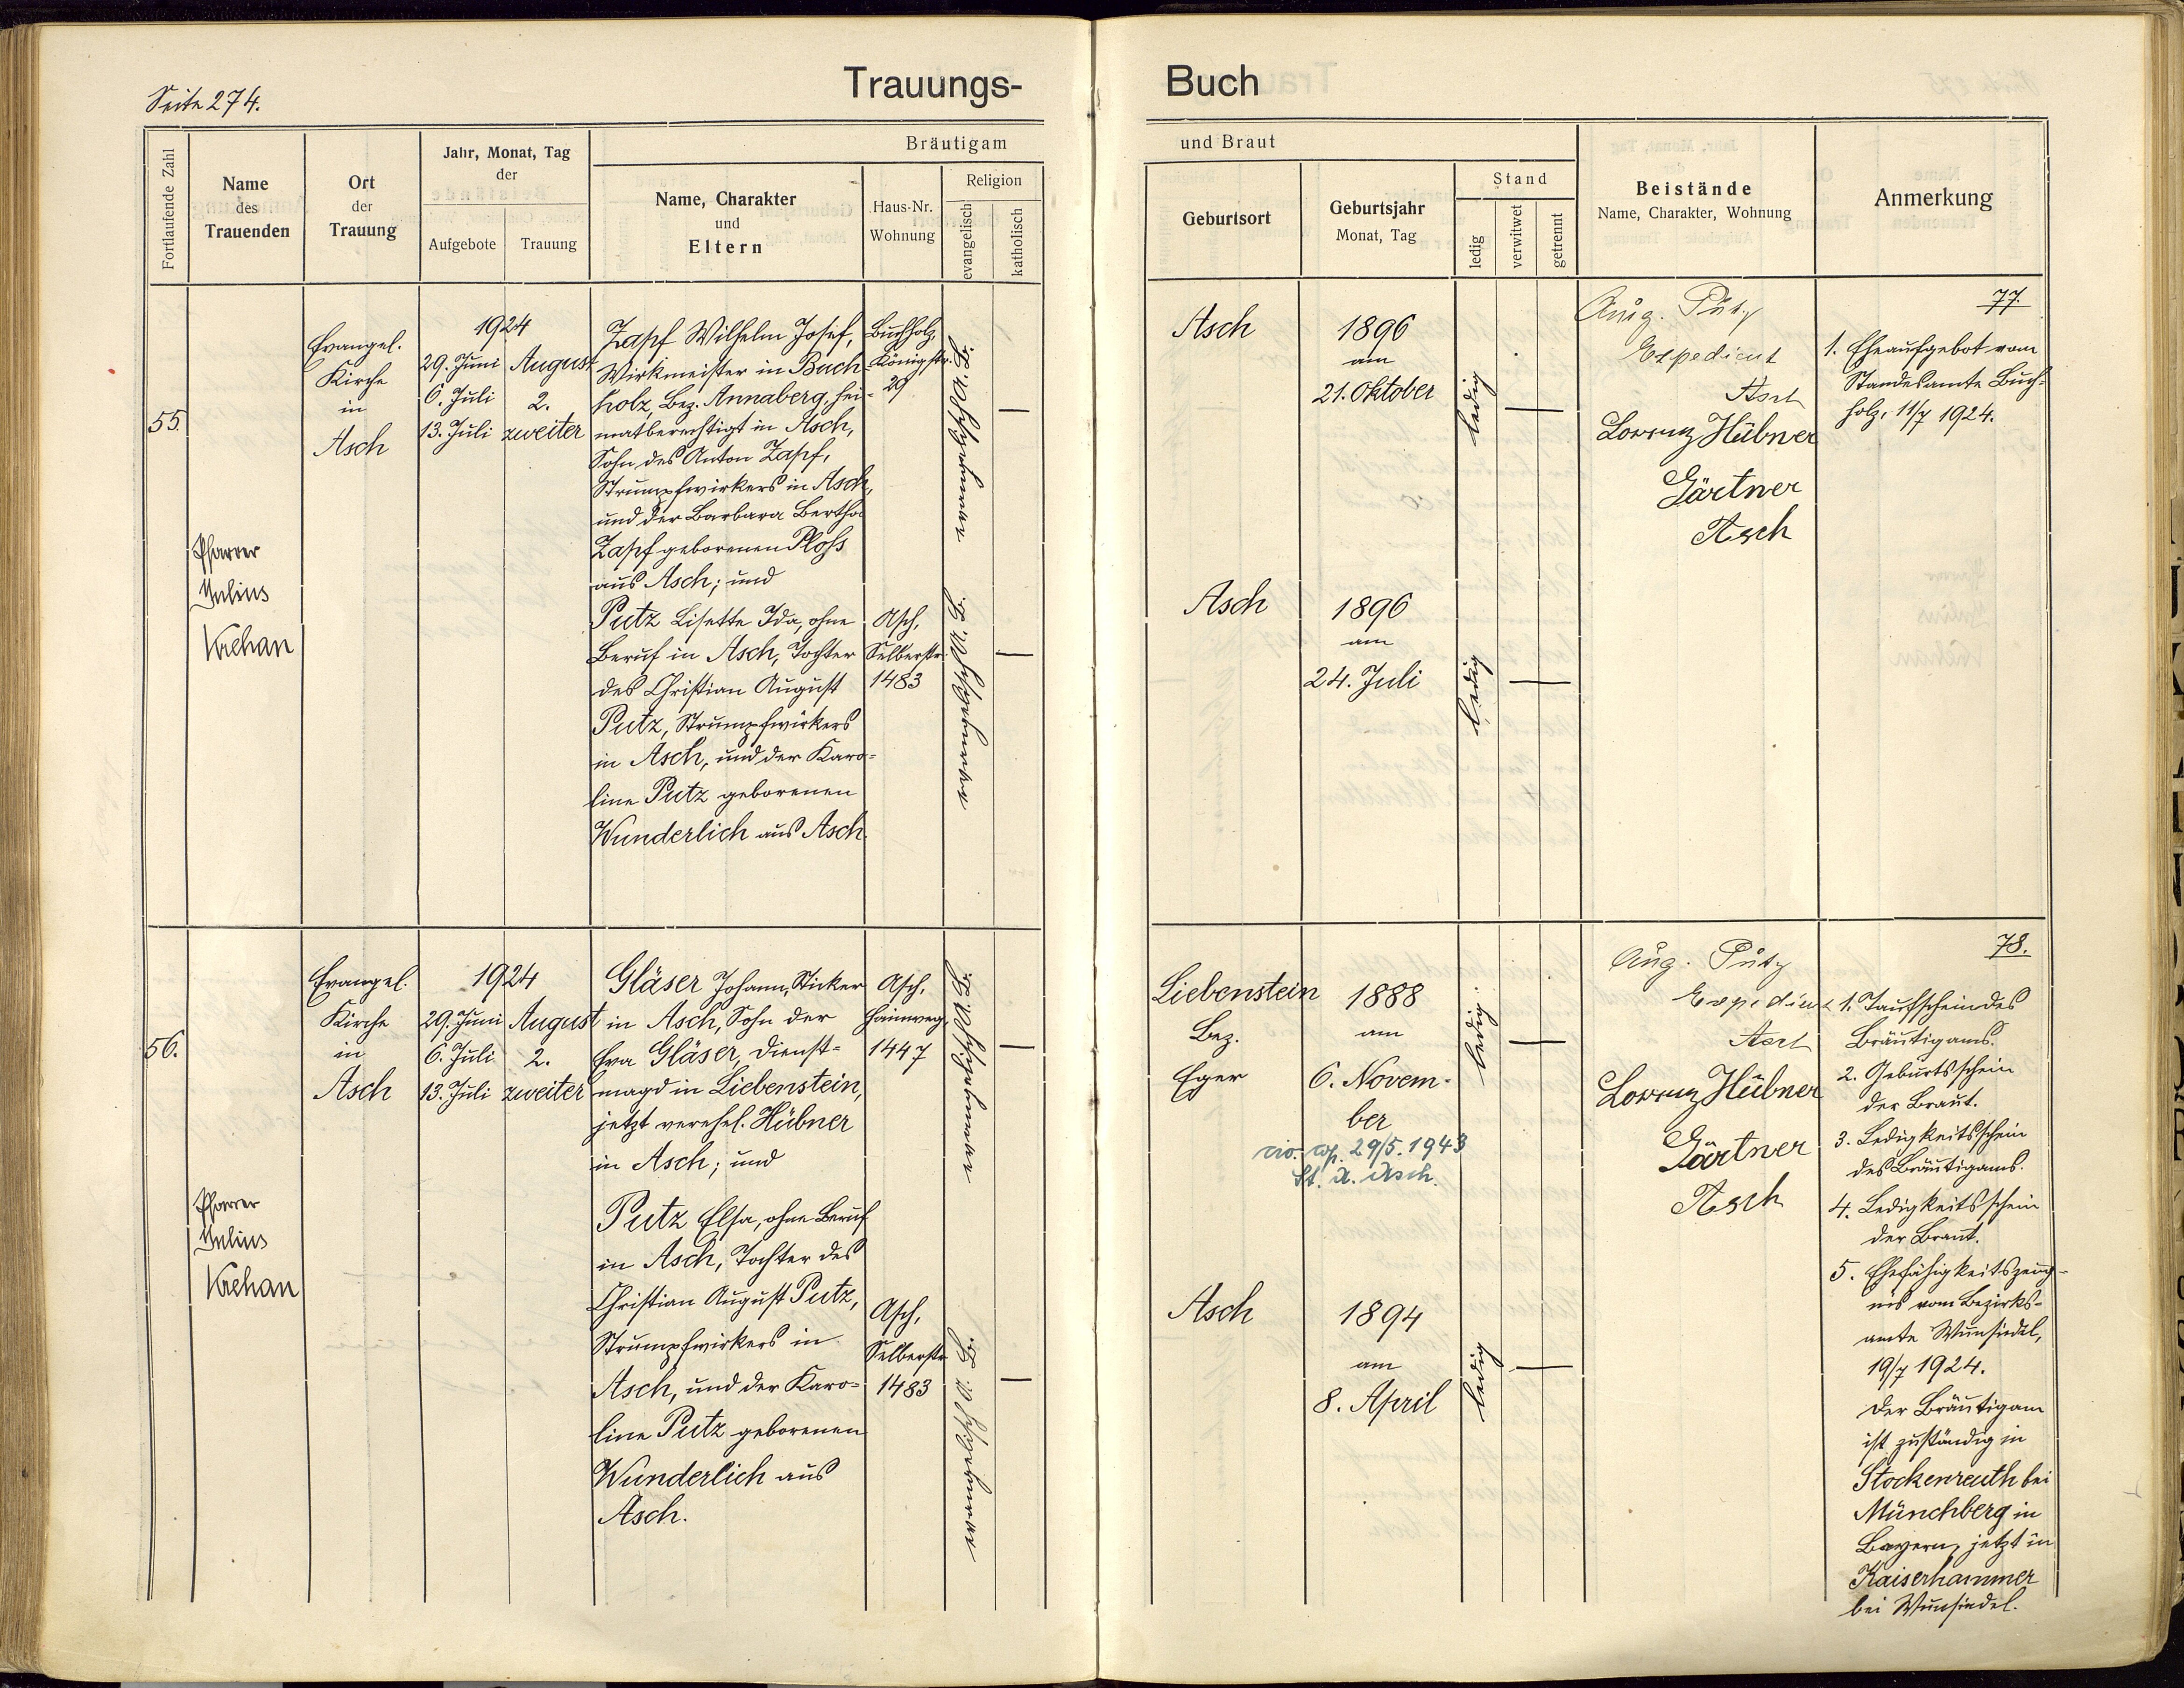 Seite 274.
Trauungs-
Buch
Fortlaufende Zahl
Name
des
Trauenden
Ort
der
Trauung
Jahr, Monat, Tag
der
Aufgebote
Trauung
Bräutigam
Name, Charakter
und
Eltern
Haus-Nr.
Wohnung
Religion
evangelisch
katholisch
und Braut
Geburtsort
Geburtsjahr
Monat, Tag
Stand
ledig
verwitwet
getrennt
Beistände
Name, Charakter, Wohnung
Anmerkung
55.
Pfarrer
Julius
Krehan
Evangel.
Kirche
in
Asch
1924
29. Juni
6. Juli
13. Juli
August
2.
zweiter
Zapf Wilhelm Josef,
Wirkmeister in Buch
holz, Bez. Annaberg, hei-
matberechtigt in Asch,
Sohn des Anton Zapf,
Strumpfwirkers in Asch,
und der Barbara Bertha
Zapf geborenen Ploß
aus Asch; und
Putz Lisette Ida, ohne
Beruf in Asch, Tochter
des Christian August
Putz, Strumpfwirkers
in Asch, und der Karo-
line Putz geborenen
Wunderlich aus Asch.
Buchholz,
Königstr.
29
Asch,
Selberstr.
1483
Asch
1896
am
21. Oktober
ledig
Asch
1896
am
24. Juli
ledig
Aug. Putz
Expedient
Asch
Lorenz Hübner
Gärtner
Asch
77.
1. Eheaufgebot vom
Standesamte Buch-
holz, 11/7 1924.
56.
Pfarrer
Julius
Krehan
Evangel.
Kirche
in
Asch
1924
29. Juni
6. Juli
13. Juli
August
2.
zweiter
Gläser Johann, Sticker
in Asch, Sohn der
Eva Gläser, Dienst-
magd in Liebenstein,
jetzt verehel. Hübner
in Asch; und
Putz Elsa, ohne Beruf
in Asch, Tochter des
Christian August Putz,
Strumpfwirkers in
Asch, und der Karo-
line Putz geborenen
Wunderlich aus
Asch.
Asch,
Hainweg,
1447
Asch,
Selberstr.
1483
Liebenstein
Bez.
Eger
1888
am
6. Novem-
ber
29/5. 1943
St. A. Asch.
ledig
Asch
1894
am
8. April
ledig
Aug. Putz
Expedient
Asch
Lorenz Hübner
Gärtner
Asch
78.
1. Taufschein des
Bräutigams.
2. Geburtsschein
der Braut.
3. Ledigkeitsschein
des Bräutigams.
4. Ledigkeitsschein
der Braut.
5. Ehefähigkeitszeug-
nis vom Bezirks-
amte Wunsiedel,
19/7 1924.
Der Bräutigam
ist zuständig in
Stockenreuth bei
Münchberg in
Bayern, jetzt in
Kaiserhammer
bei Wunsiedel.